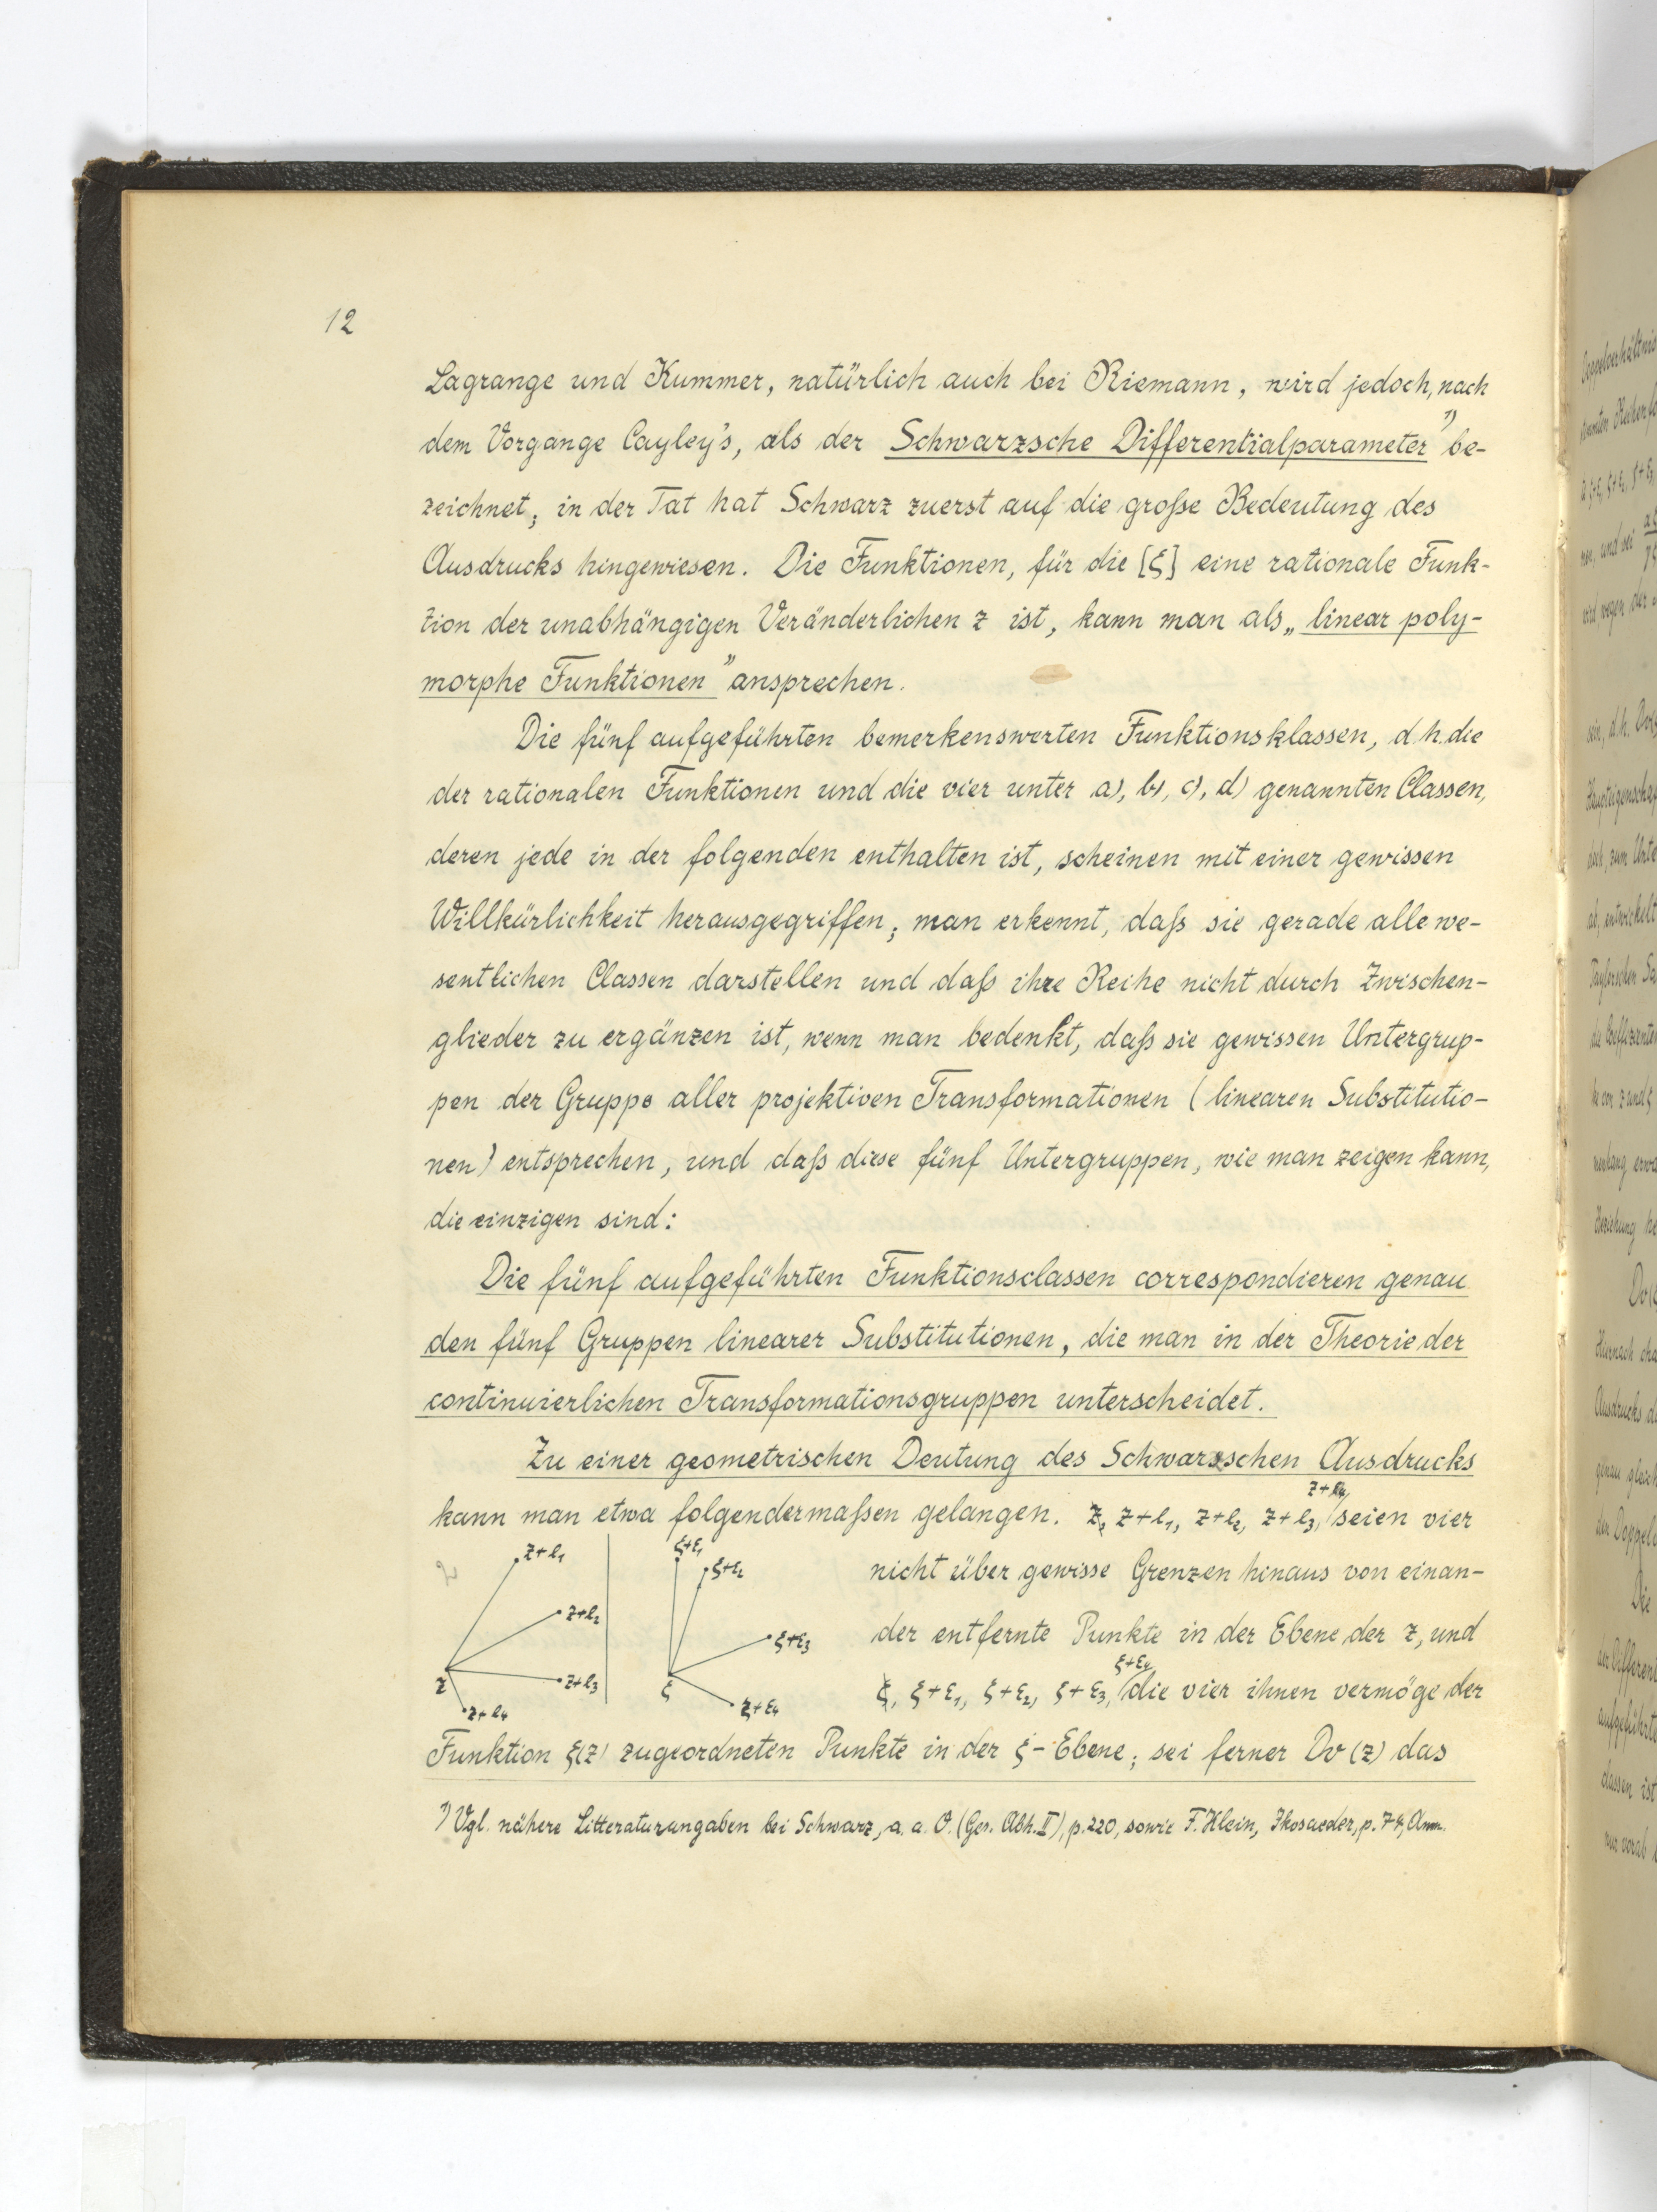 12
Lagrange und Kummer, natürlich auch bei Riemann, wird jedoch, nach
dem Vorgange Cayley's, als der Schwarzsche Differentialparameter ¹) be-
zeichnet; in der Tat hat Schwarz zuerst auf die große Bedeutung des
Ausdrucks hingewiesen. Die Funktionen, für die [ξ] eine rationale Funk-
tion der unabhängigen Veränderlichen z ist, kann man als „linear poly-
morphe Funktionen" ansprechen.
Die fünf aufgeführten bemerkenswerten Funktionsklassen, d.h. die
der rationalen Funktionen und die vier unter a), b), c), d) genannten Classen,
deren jede in der folgenden enthalten ist, scheinen mit einer gewissen
Willkürlichkeit herausgegriffen; man erkennt, daß sie gerade alle we-
sentlichen Classen darstellen und daß ihre Reihe nicht durch Zwischen-
glieder zu ergänzen ist, wenn man bedenkt, daß sie gewissen Untergrup-
pen der Gruppe aller projektiven Transformationen (linearen Substitutio-
nen) entsprechen, und daß diese fünf Untergruppen, wie man zeigen kann,
die einzigen sind:
Die fünf aufgeführten Funktionsclassen correspondieren genau
den fünf Gruppen linearer Substitutionen, die man in der Theorie der
continuierlichen Transformationsgruppen unterscheidet.
Zu einer geometrischen Deutung des Schwarzschen Ausdrucks
z+l₄
kann man etwa folgendermaßen gelangen. z, z+l₁, z+l₂, z+l₃, seien vier
nicht über gewisse Grenzen hinaus von einan-
der entfernte Punkte in der Ebene der z, und
ξ+ε₄
ξ, ξ+ε₁, ξ+ε₂, ξ+ε₃, die vier ihnen vermöge der
z+l₁
z+l₂
z+l₃
z
z+l₄
ξ+ε₁
ξ+ε₂
ξ+ε₃
ξ
ξ+ε₄
Funktion ξ(z) zugeordneten Punkte in der ξ-Ebene; sei ferner Dv (z) das
¹) Vgl. nähere Litteraturangaben bei Schwarz, a. a. O. (Ges. Abh. II), p. 220, sowie F. Klein, Ikosaeder, p. 74, Anm.